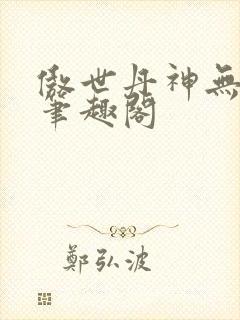 傲世丹神無
筆趣閣
鄭弘波